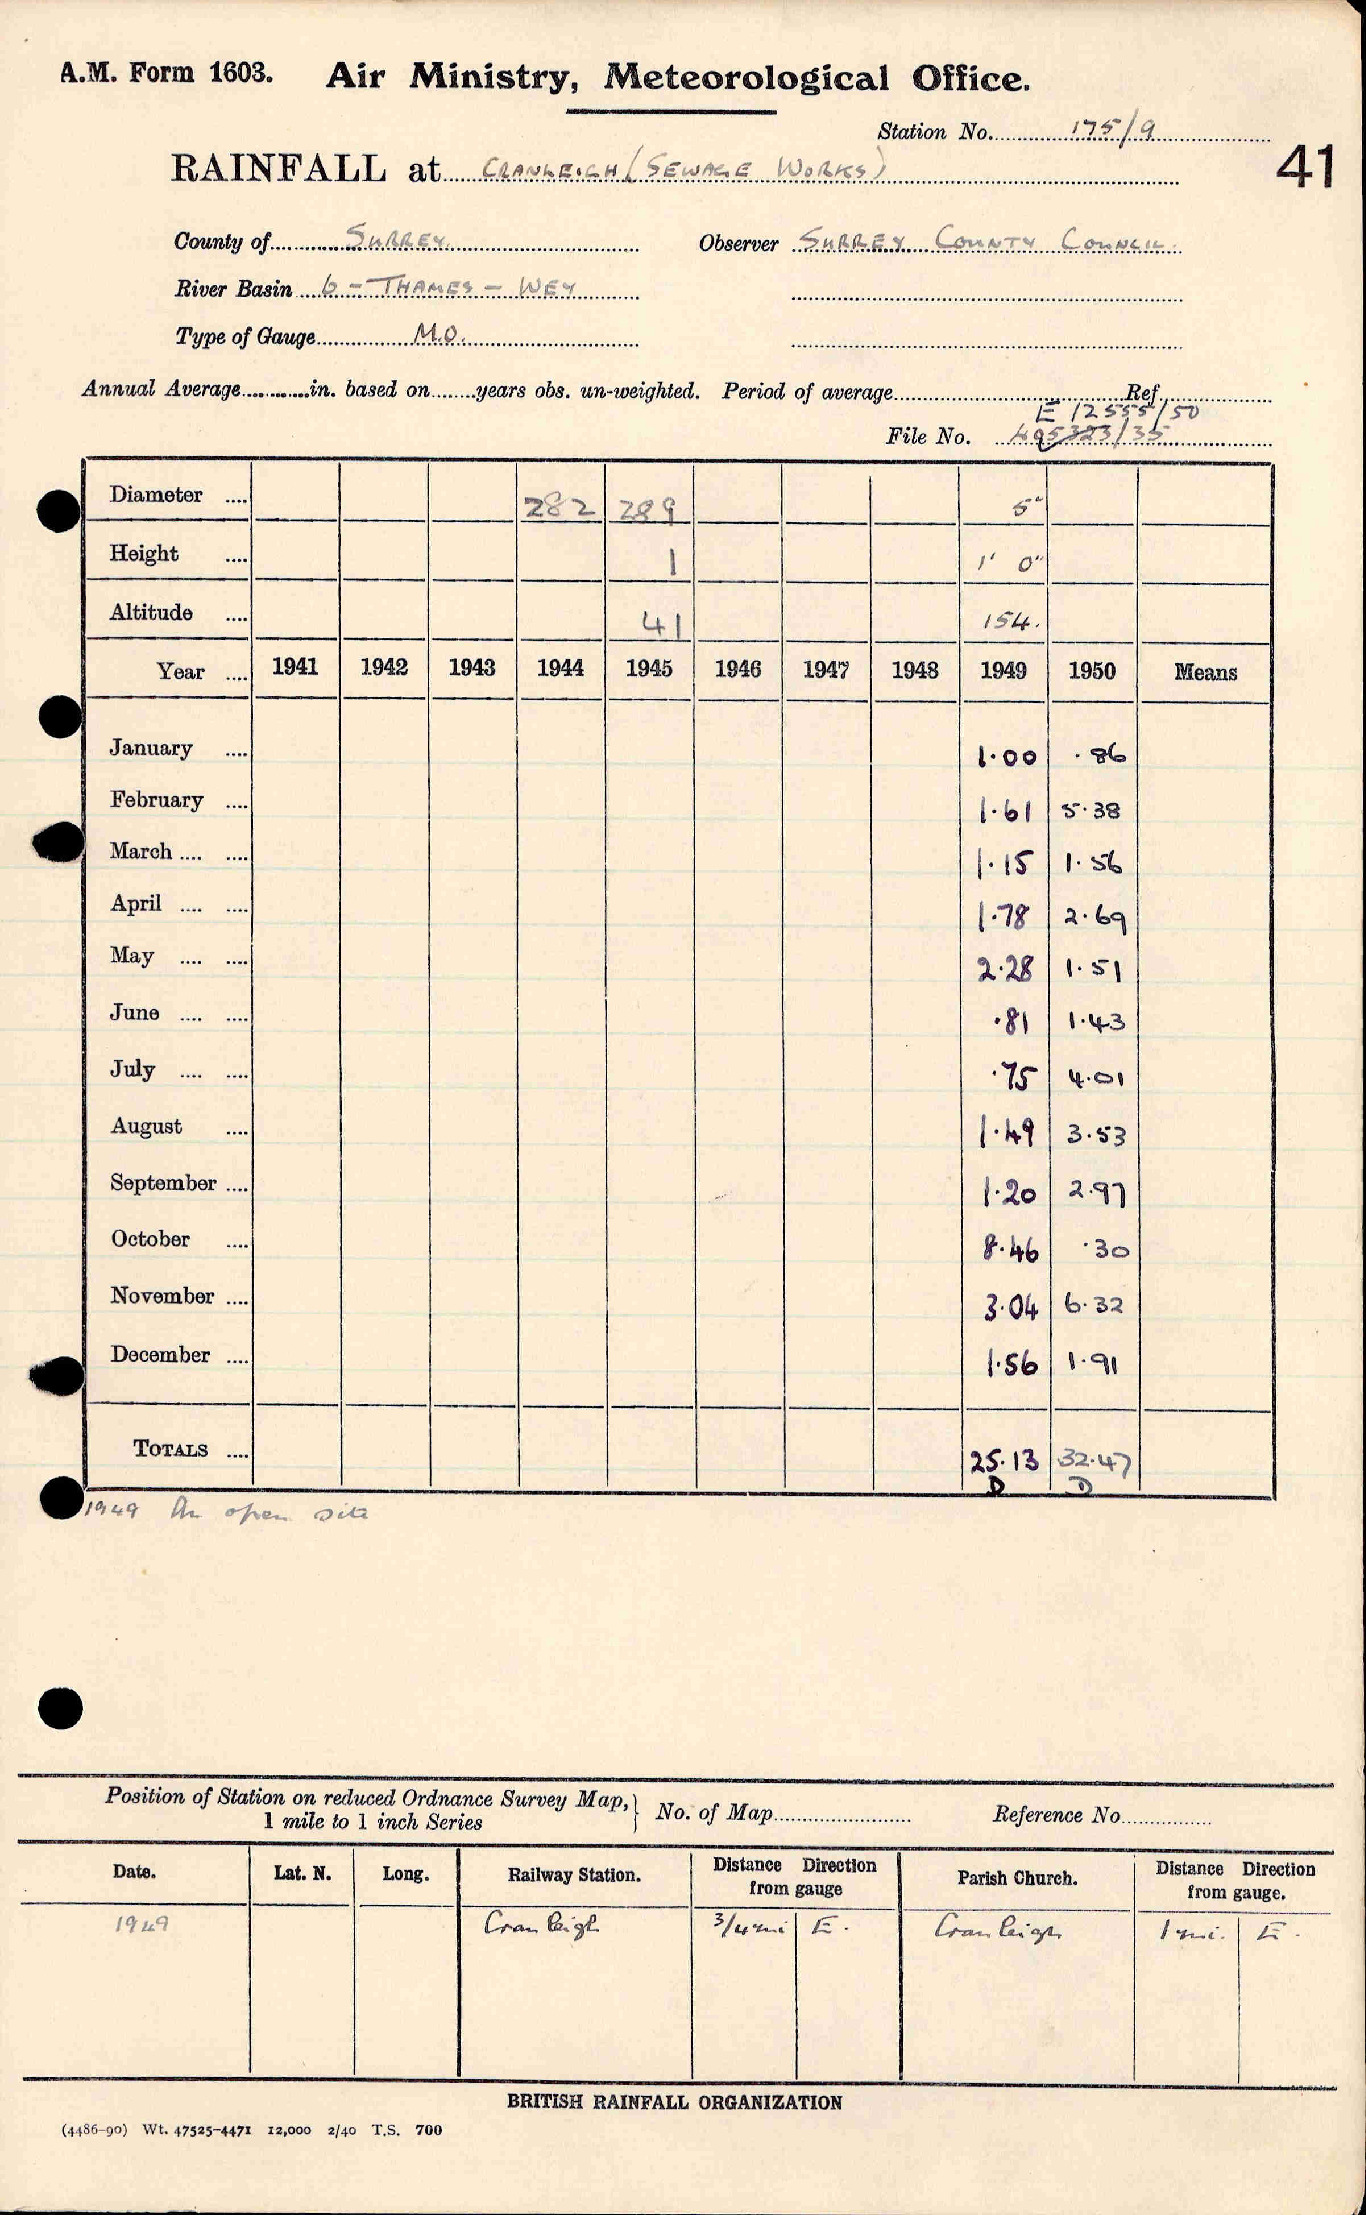 A.M. Form 1603. Air Ministry, Meteorological Office.
Station No. 175/9
41
RAINFALL at CRANLEIGH (SEWAGE WORKS)
County of SURREY. Observer SURREY COUNTY COUNCIL.
River Basin 6 - THAMES - WEY
Type of Gauge M.O.
Annual Average in. based on years obs. un-weighted. Period of average Ref.
E 12555/50
File No. 495323/35
Diameter 282 289 5"
Height 1 1' 0"
Altitude 41 154.
Year 1941 1942 1943 1944 1945 1946 1947 1948 1949 1950 Means
January 1.00 .86
February 1.61 5.38
March 1.15 1.56
April 1.78 2.69
May 2.28 1.51
June .81 1.43
July .75 4.01
August 1.49 3.53
September 1.20 2.97
October 8.46 .30
November 3.04 6.32
December 1.56 1.91
TOTALS 25.13 32.47
D D
1949 An open site
Position of Station on reduced Ordnance Survey Map,
1 mile to 1 inch Series
No. of Map Reference No.
Date. Lat. N. Long. Railway Station. Distance Direction from gauge Parish Church. Distance Direction from gauge.
1949 Cranleigh 3/4 mi E. Cranleigh 1 mi. E.
BRITISH RAINFALL ORGANIZATION
(4486-90) Wt. 47525-4471 12,000 2/40 T.S. 700